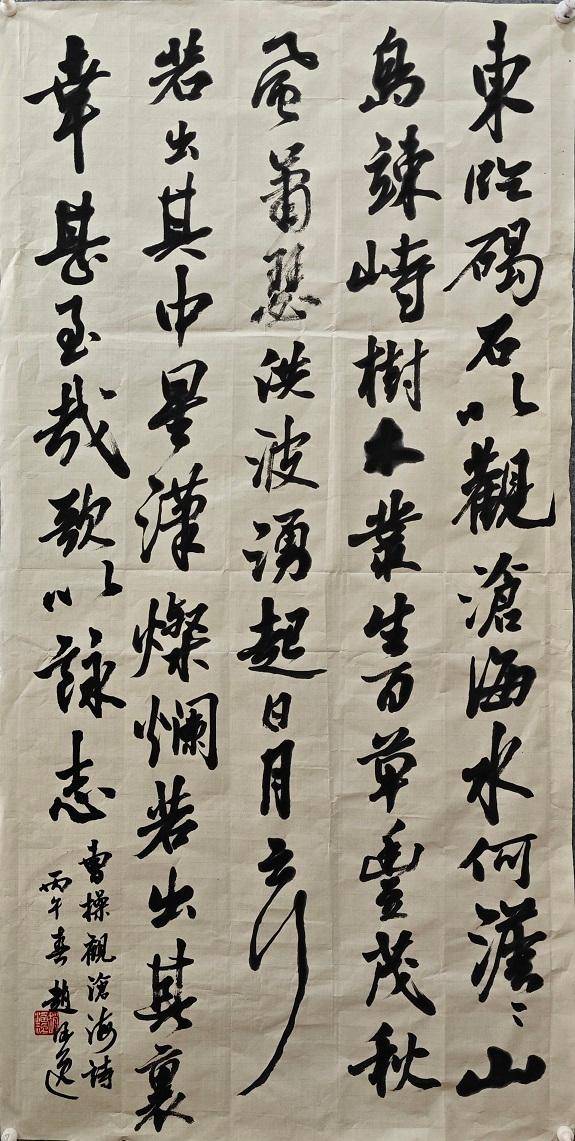 東臨碣石以觀滄海水何澹〻山
島竦峙樹木叢生百草豐茂秋
風蕭瑟洪波湧起日月之行
若出其中星漢燦爛若出其裏
幸甚至哉歌以詠志
曹操觀滄海詩
丙午春趙